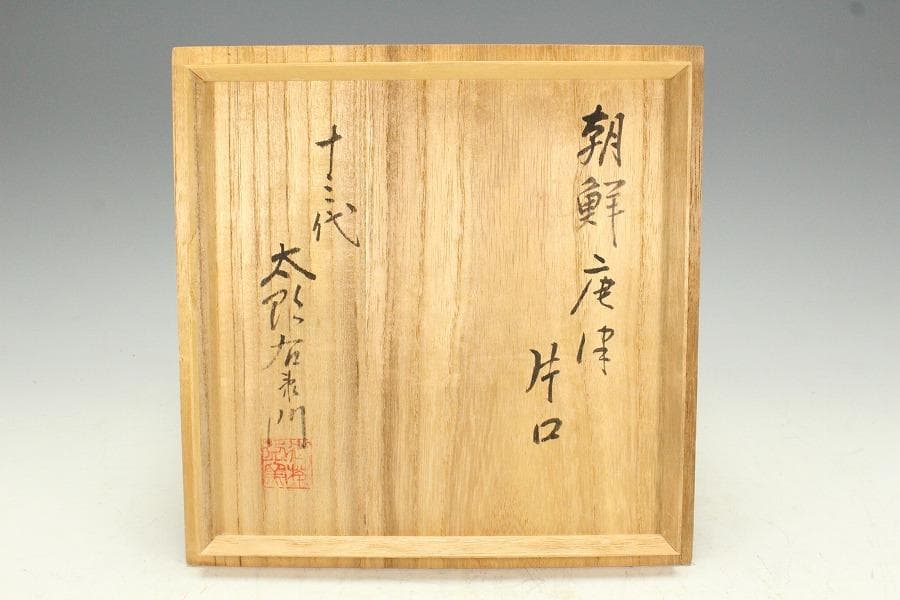 朝鮮唐津
片口
十三代
太郎右衛門